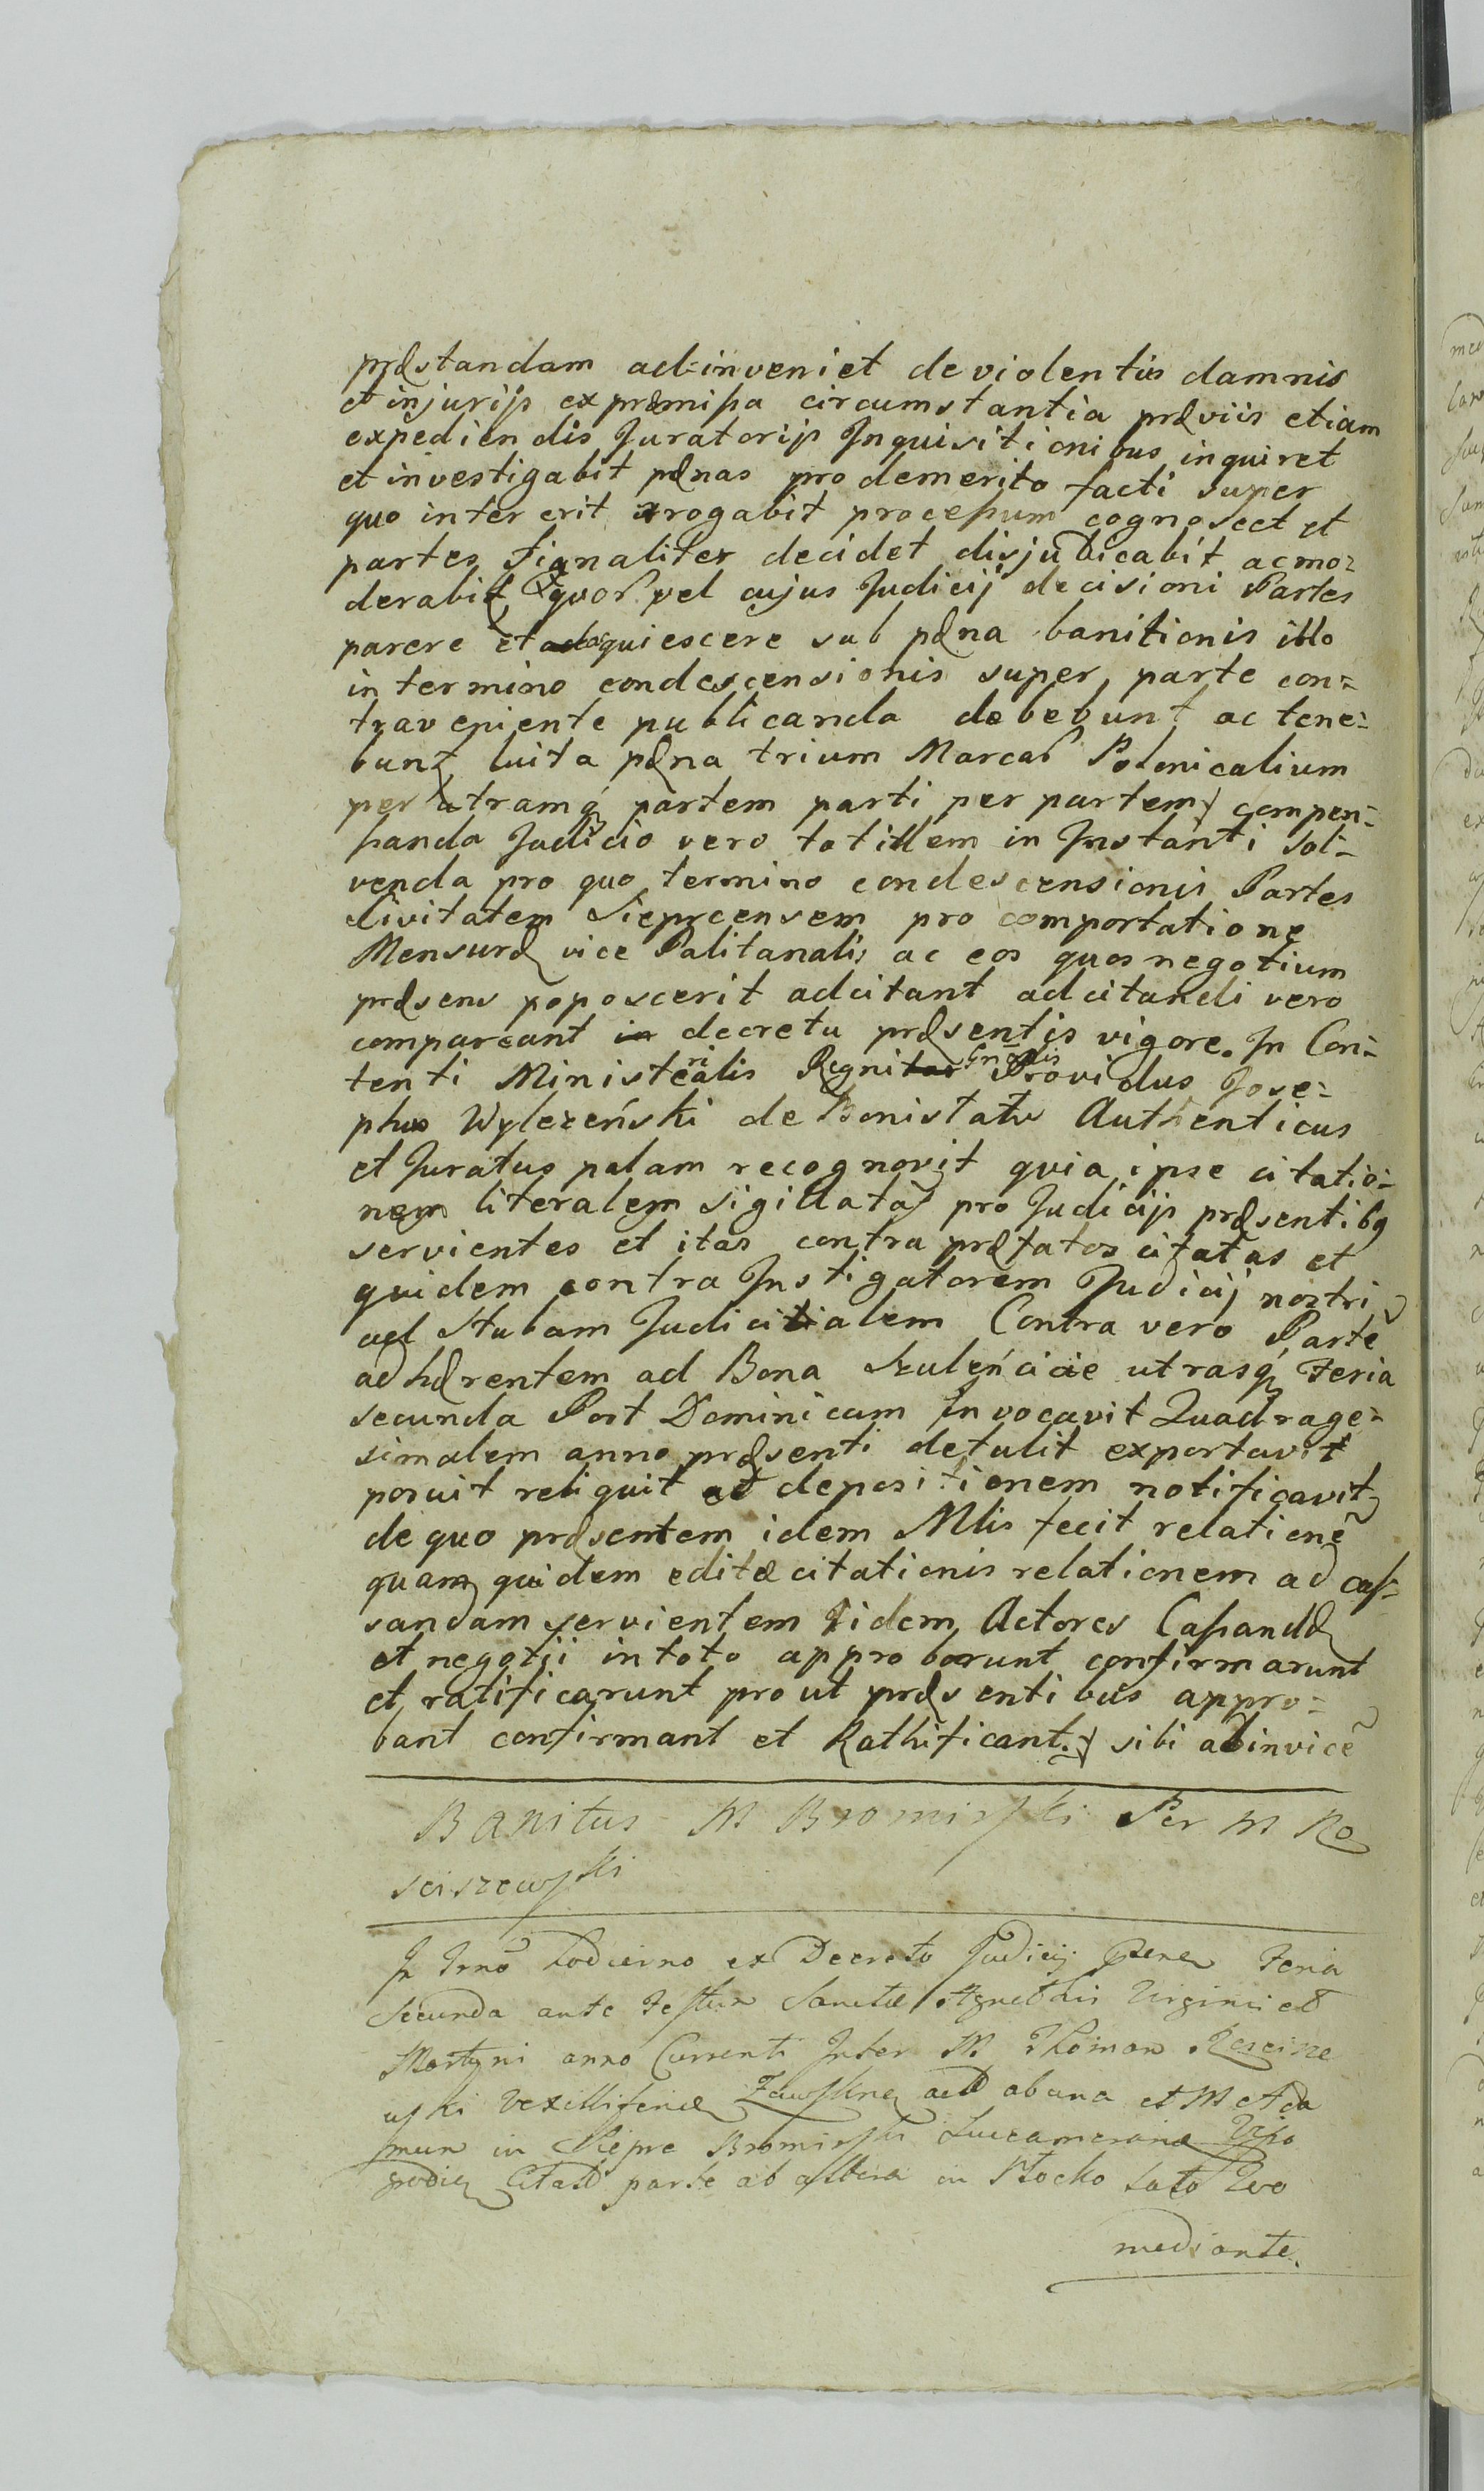 præstandam ad-inveniet de violentiis damnis
et injurijs ex præmissa circumstantia præviis etiam
expediendis Juratorijs Inquisitionibus inquiret
et investigabit pænas pro demerito facti super
quo intererit irrogabit processum cognoscet et
partes signaliter decidet disjudicabit ac mo=
derabit quor vel cujus Judicij decisioni Partes
parere et acquiescere sub pæna banitionis illo
in termino condescensionis super parte con=
traveniente publicanda debebunt ac tene=
bunt luita pæna trium Marcar Polonicalium
per utramq partem parti per partem compen=
sanda Judicio vero totidem in Instanti sol=
venda pro quo termino condescensionis Partes
Civitatem Sieprcensem pro comportatione
Mensuræ vice Palitanalis ac eos quos negotium
præsens poposcerit adcitant adcitandi vero
compareant decretu præsentis vigore. In Con=
tenti Ministerialis Regni Gnralis Providus Jose=
phus Wylezeński de Bonis tatu Authenticus
et Juratus palam recognovit quia ipse citatio=
nem literalem sigillatã pro Judicijs præsentibq
servientes et itas contra præfatos citatas et
quidem contra Instigatorem Judicij nostri
ad Stubam Judicialem Contra vero Partẽ
adhærentem ad Bona Szuleńcice utrasq Feria
secunda Post Dominicam Invocavit Quadrage=
simalem anno præsenti detulit exportavit
posuit reliquit ad depositionem notificavit
de quo præsentem idem Mlis fecit relationẽ
quam quidem editæ citationis relationem ad cas=
sandam servientem iidem Actores Cassandæ
et negotii in toto approbarunt confirmarunt
et ratificarunt prout præsentibus appro=
bant confirmant et Rathificant. sibi adinvicẽ
Banitus M Bromirski Per M Ro
sciszewski
In Trno hodierno ex Decreto Judicij Feria
Secunda ante Festum Sanctæ Agnethis Virginis et
Martyris anno Currenti Inter M Thomam Rosciszew
ski Vexilliferidæ Zawskrne ab una et M Ada
mum in Siepre Bromirski Succameraridæ
Citat parte ab altera in Plocko lato
mediante.